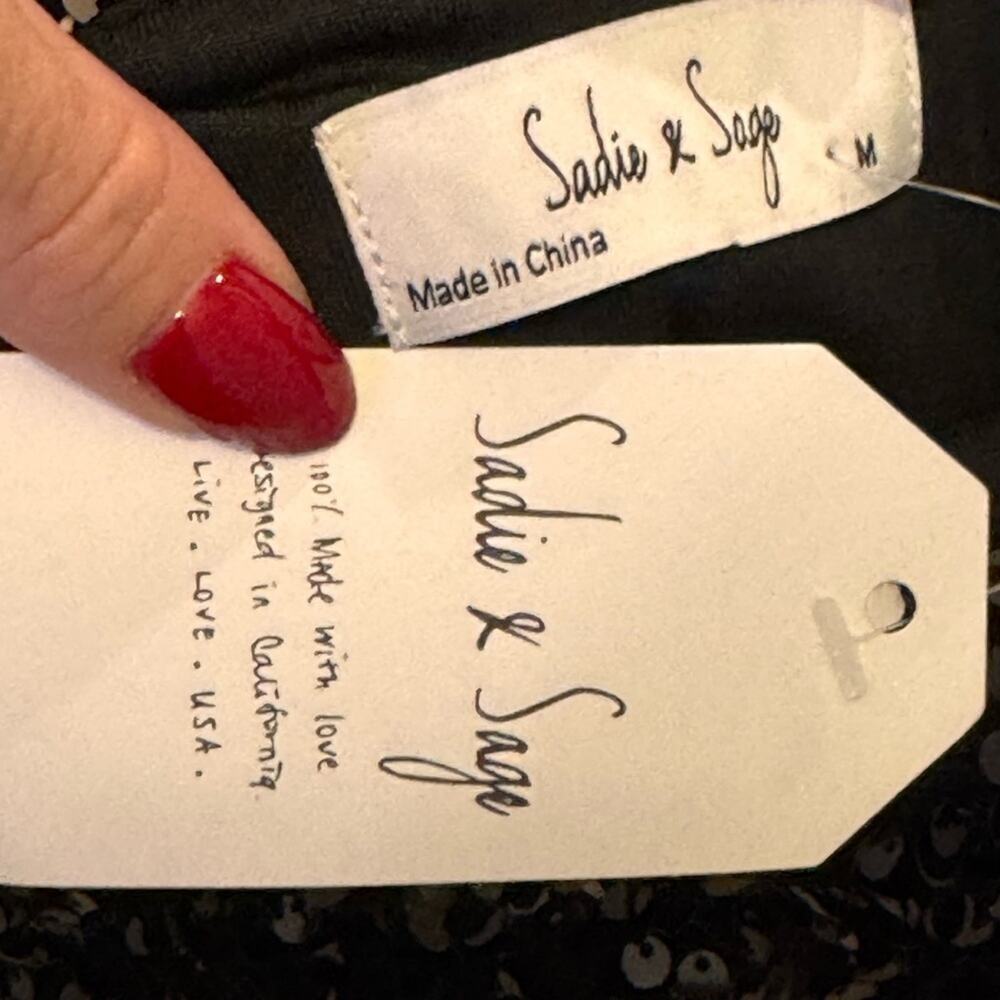 Sadie & Sage
M
Made in China
Sadie & Sage
100% Made with love
esigned in California.
LIVE. LOVE. USA.